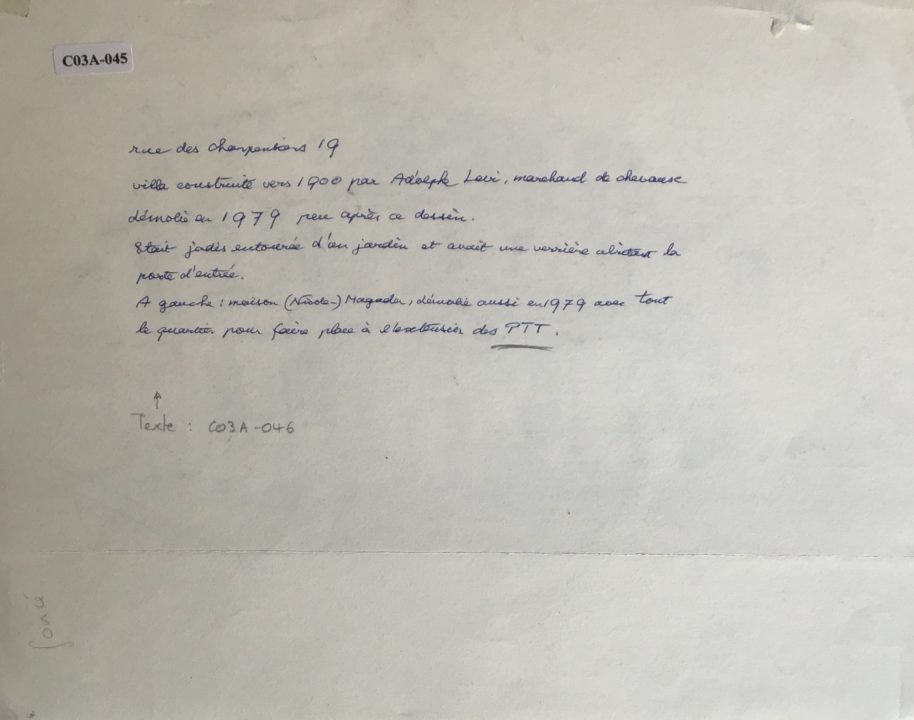 C03A-045
rue des charpentiers 19
villa construite vers 1900 par Adolphe Levi, marchand de chevaux
démolie en 1979 peu après ce dessin.
Etait jadis entourée d'un jardin et avait une verrière abritant la
porte d'entrée.
A gauche : maison Magada, démolie aussi en 1979 avec tout
le quartier pour faire place à l'extension des PTT.
↑
Texte : C03A-046